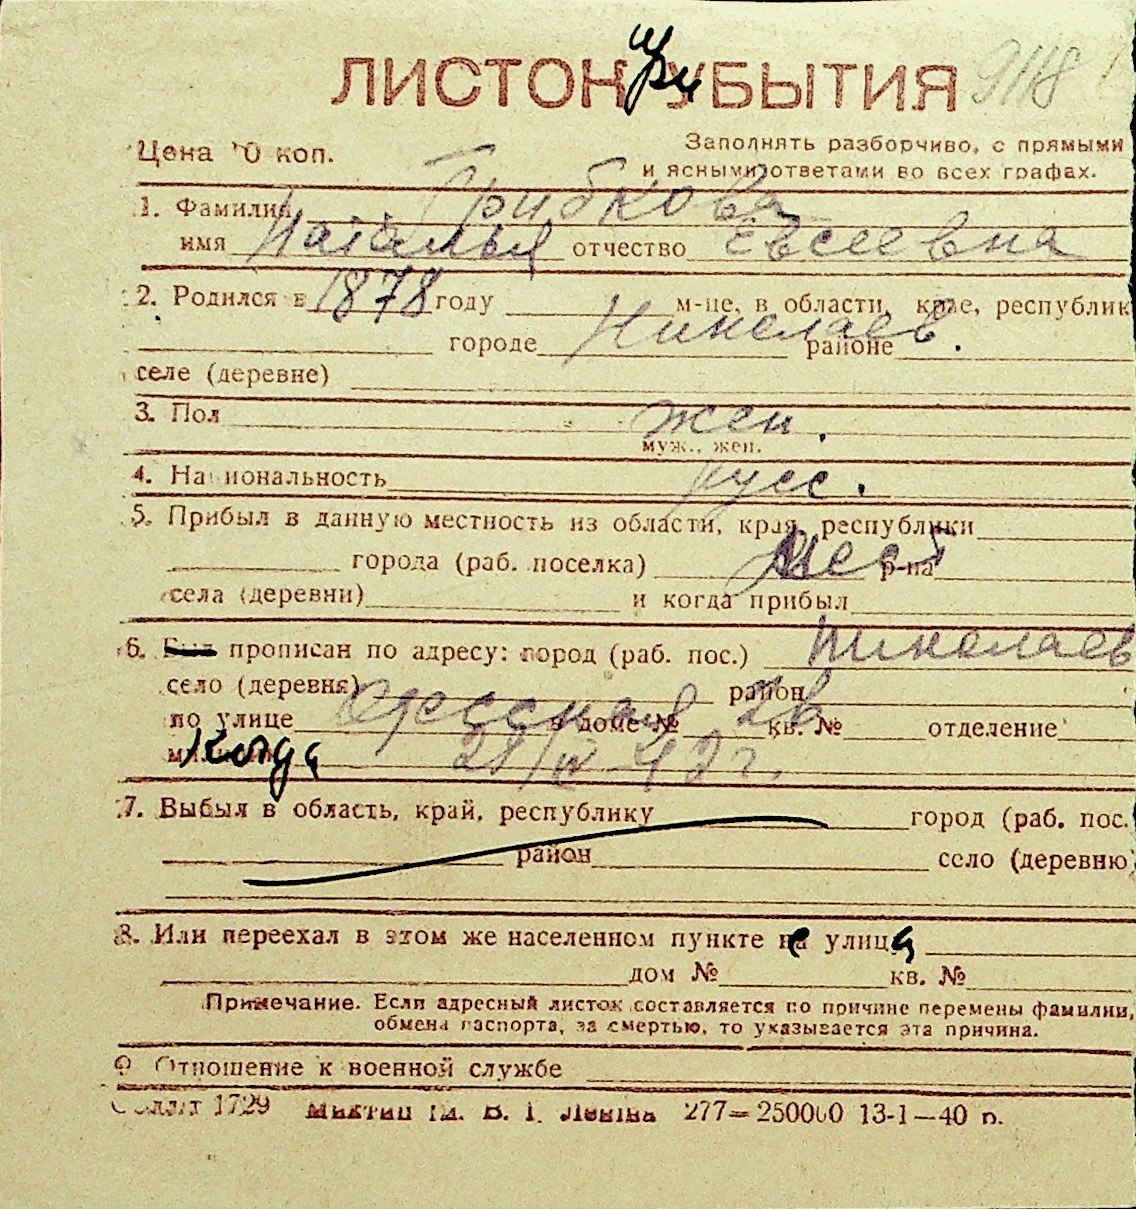 ЛИСТОК при УБЫТИЯ 9118
Цена 10 коп. Заполнять разборчиво, с прямыми
и ясными ответами во всех графах.
1. Фамилия Грибкова
имя Наталья отчество Евсеевна
2. Родился в 1878 году м-це, в области, крае, республик
городе Николаев. районе
селе (деревне)
3. Пол жен.
муж., жен.
4. Национальность русс.
5. Прибыл в данную местность из области, края, республики
города (раб. поселка) мест р-на
села (деревни) и когда прибыл
6. Был прописан по адресу: город (раб. пос.) Николаев
село (деревня) район
по улице Одесская в доме № 2в кв. № отделение
когда 28/IV-42 г.
7. Выбыл в область, край, республику город (раб. пос.
район село (деревню)
8. Или переехал в этом же населенном пункте не улица
дом № кв. №
Примечание. Если адресный листок составляется по причине перемены фамилии,
обмена паспорта, за смертью, то указывается эта причина.
9. Отношение к военной службе
1729 Миктип им. В. І. Леніна 277—250000 13-1—40 р.